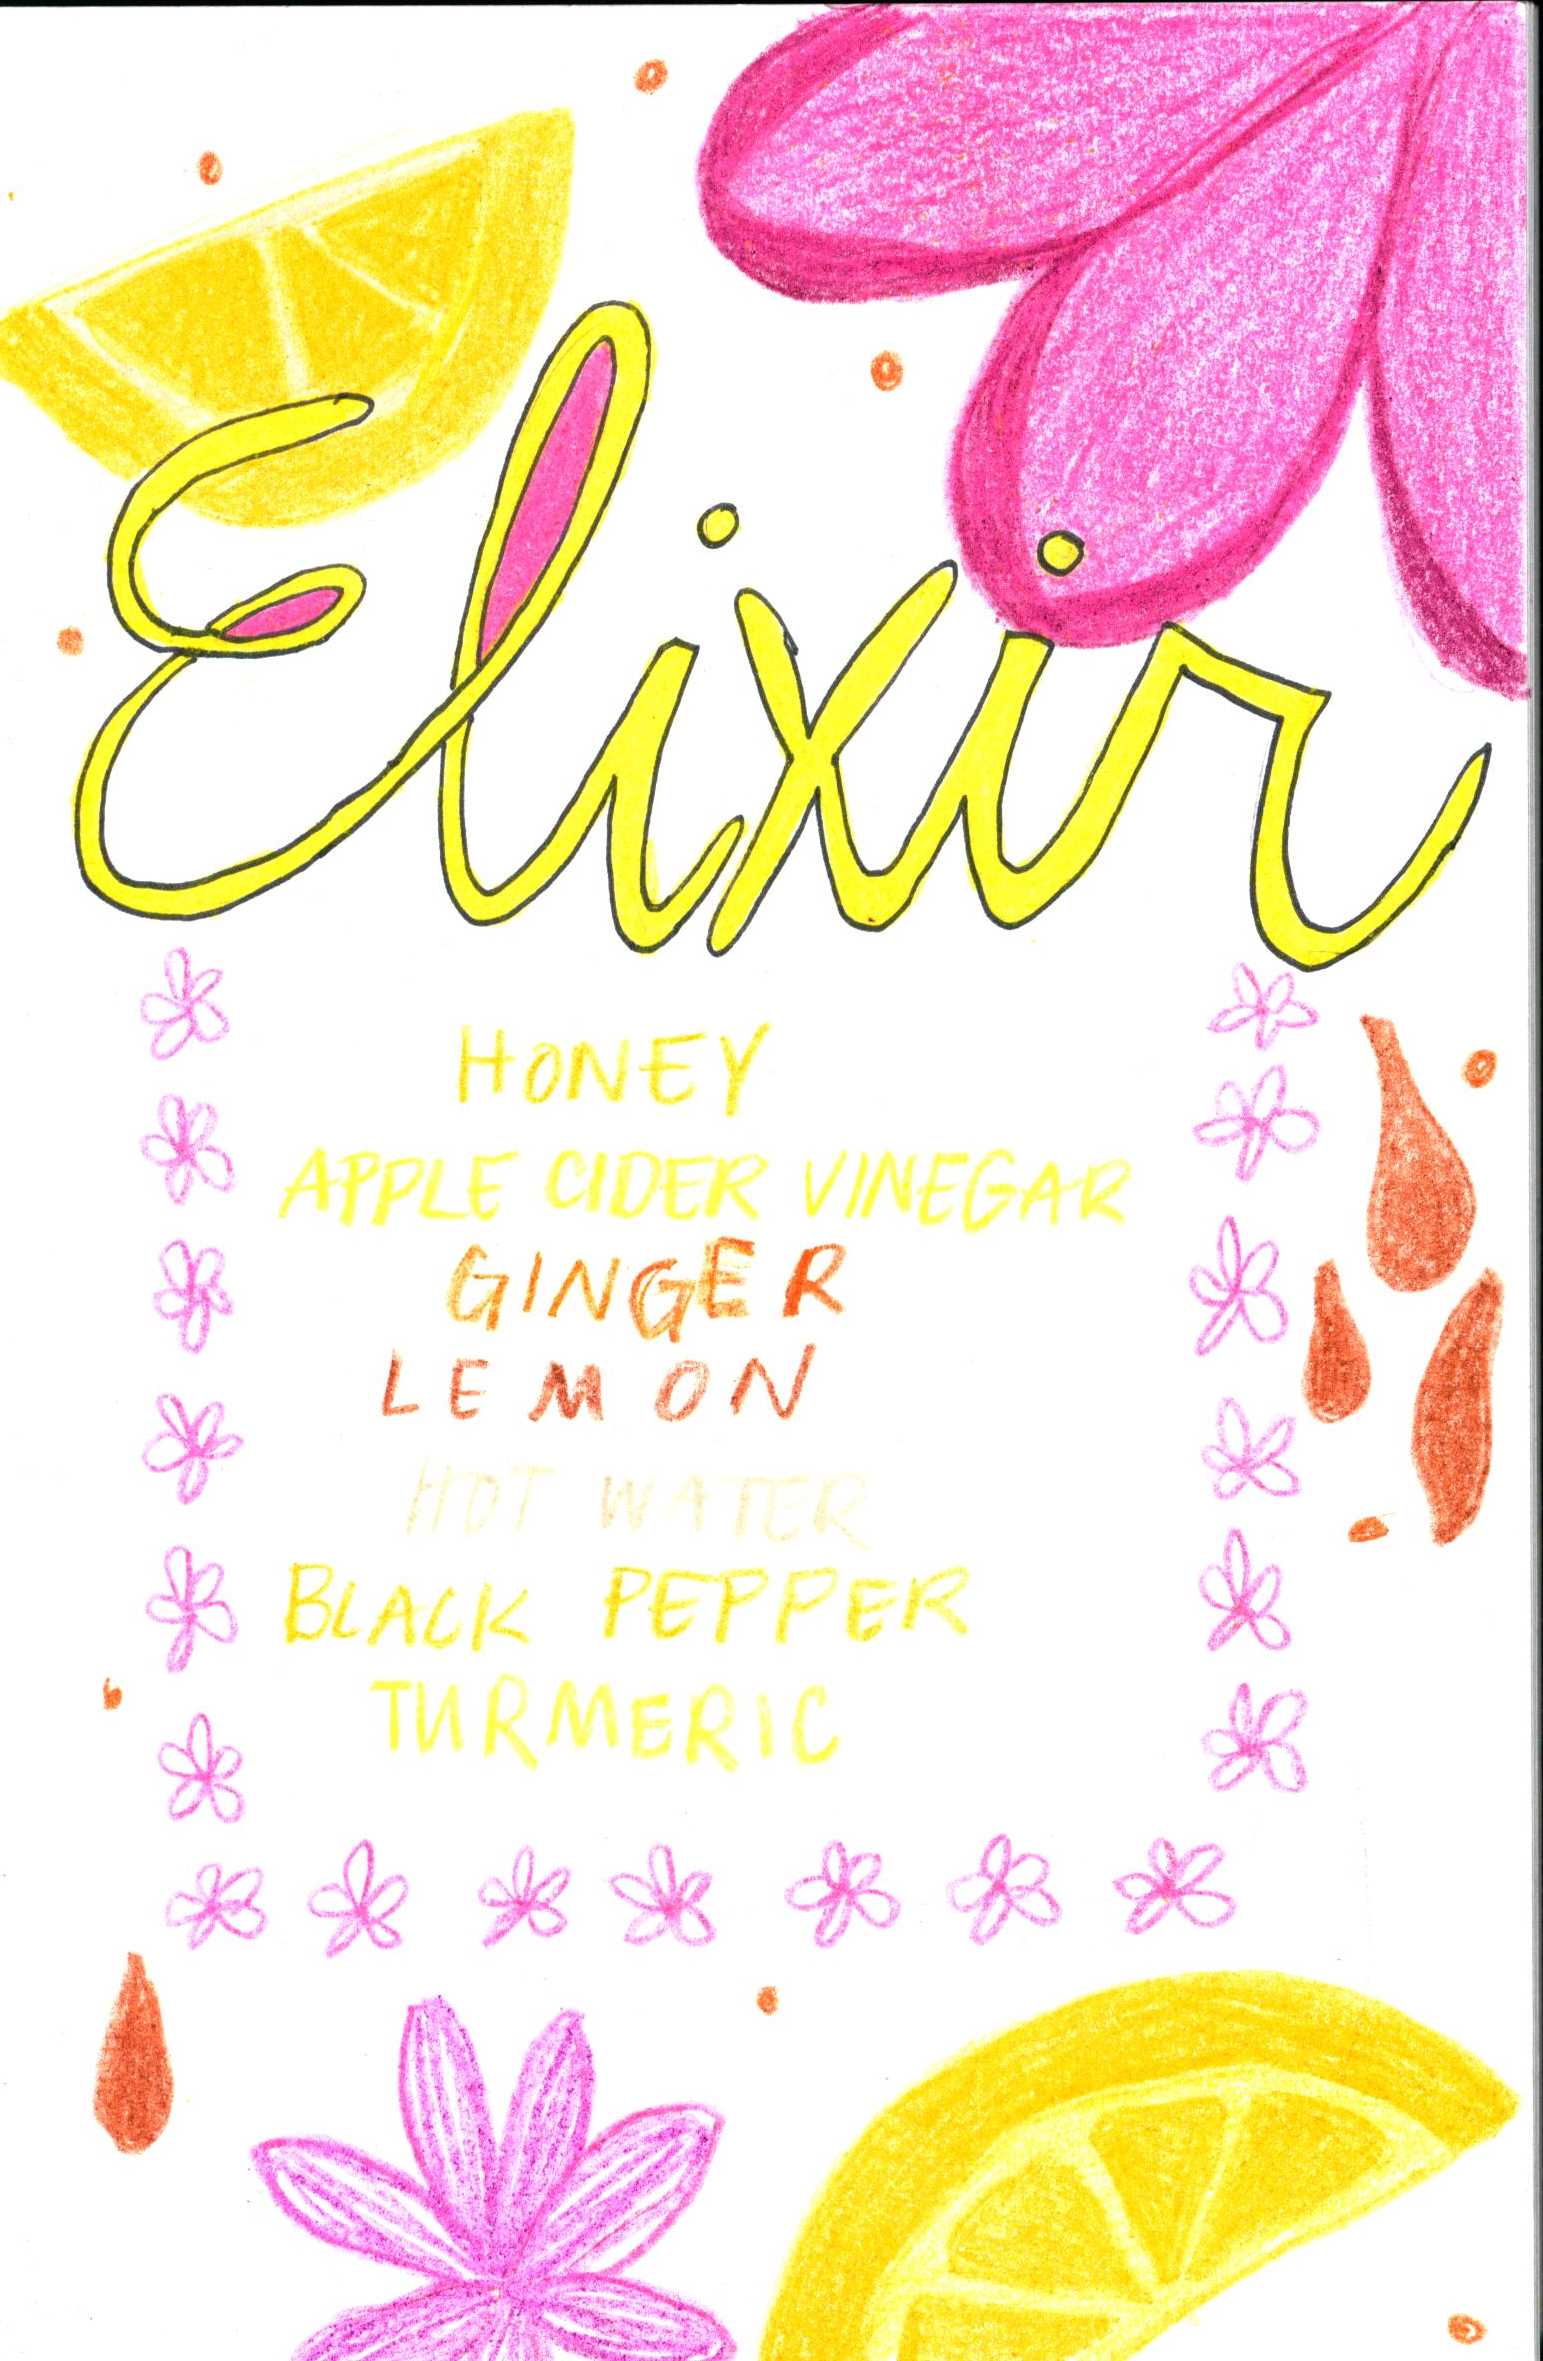 Elixir
HONEY
APPLE CIDER VINEGAR
GINGER
LEMON
HOT WATER
BLACK PEPPER
TURMERIC